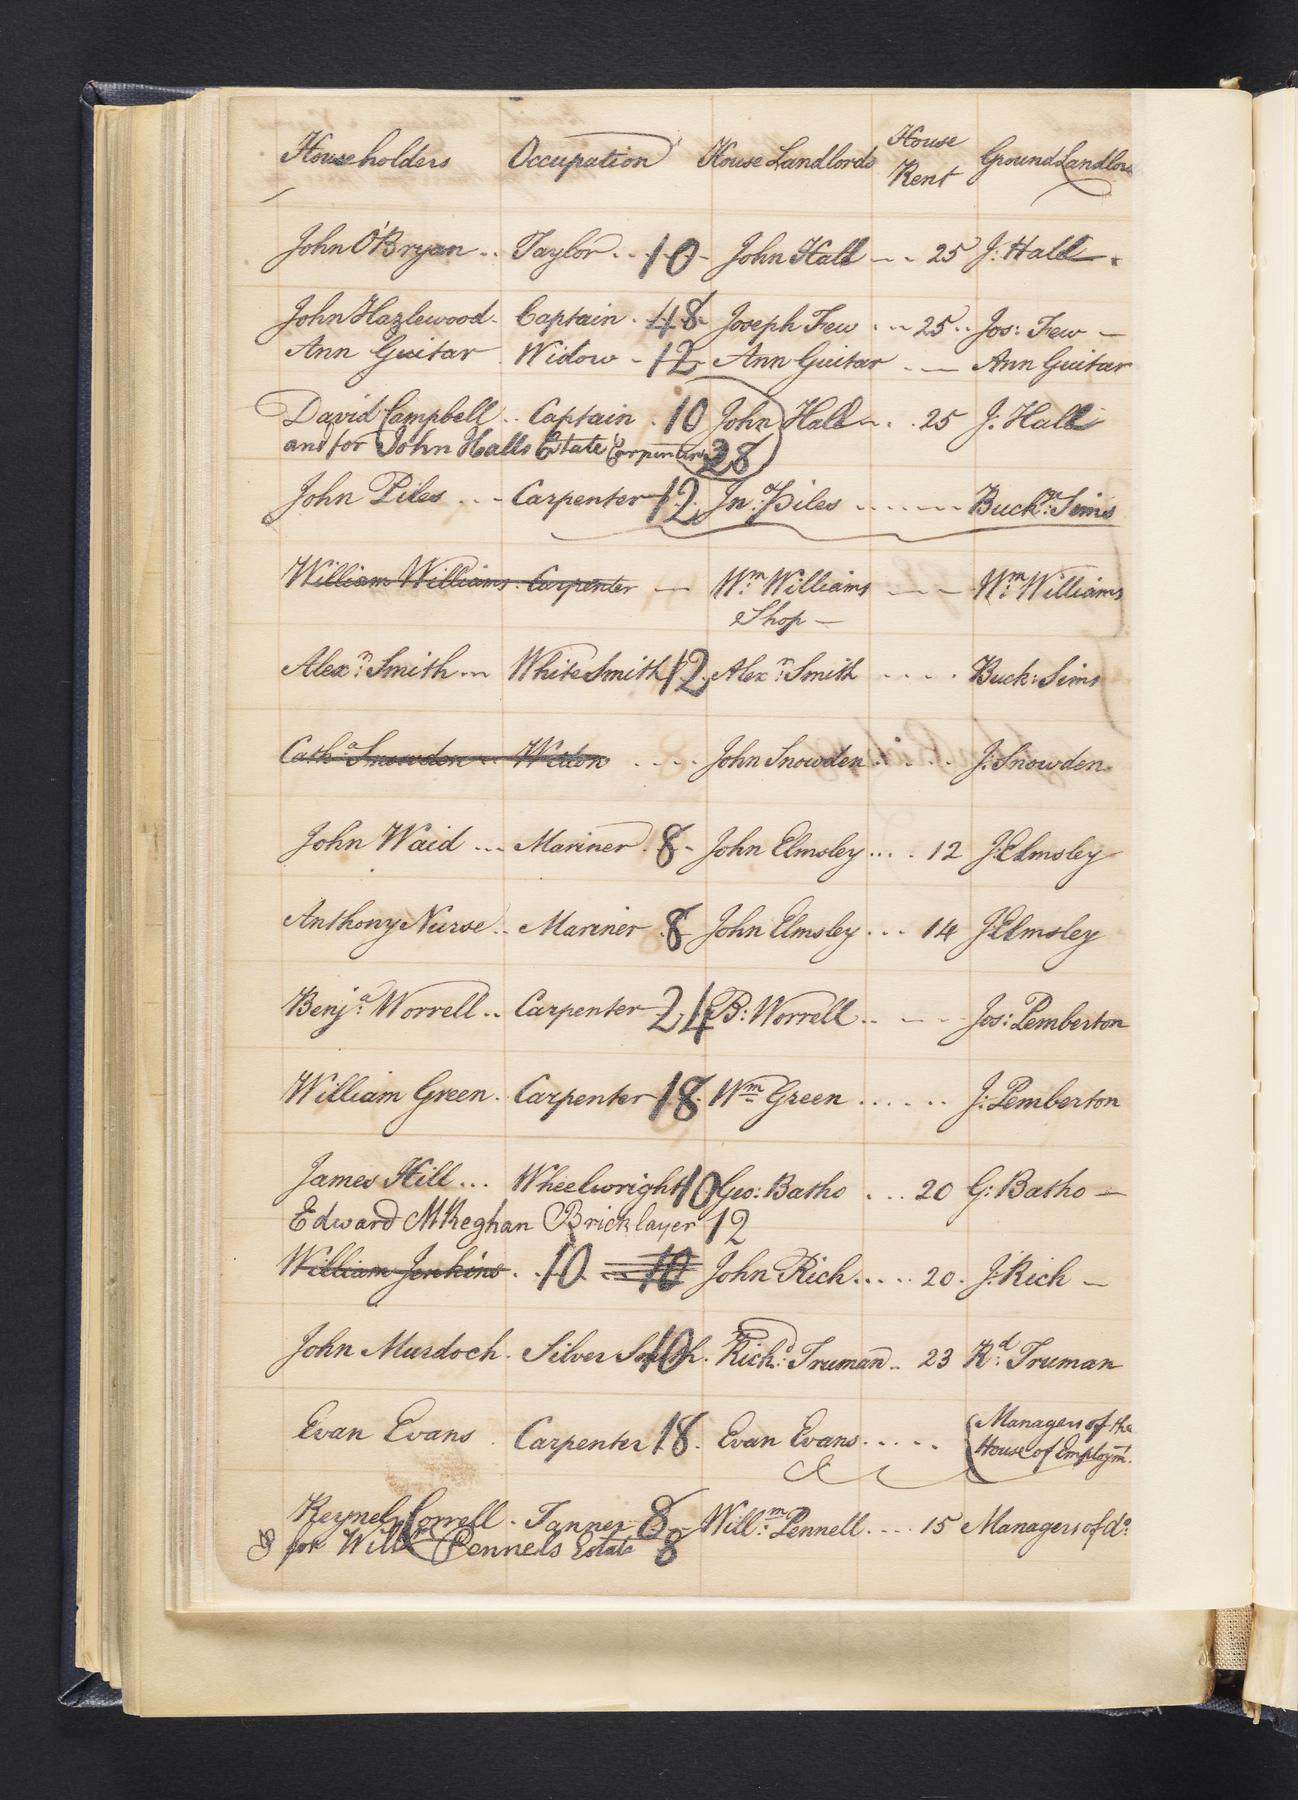 Householders Occupation House Landlords House Rent Ground Landlor
John O'Bryan .. Taylor . . 10 - John Hall - . 25 J: Hall .
John Hazlewood - Captain . 48 - Joseph Few . .. 25 .. Jos: Few -
Ann Guitar Widow - 12 - Ann Guitar . - - Ann Guitar
David Campbell .. Captain . 10 John Hall - . . 25 J: Hall
and for John Halls Estate Carpenter 28
John Piles .. - Carpenter 12 Jnº Piles ........ - Buckʳ: Sims
William Williams . Carpenter - Wᵐ: Williams - - - Wᵐ: Williams
Shop -
Alexʳ: Smith ... White Smith 12 . Alexʳ: Smith . . . . Buck: Sims
Cathᵃ Snowden .. Widow . . . . John Snowden . . . . J: Snowden
John Waid ... Mariner . 8 - John Elmsley ... . 12 J: Elmsley
Anthony Nurse .. Mariner . 8 - John Elmsley . . . 14 J: Elmsley
Benjᵃ: Worrell .. Carpenter 24 B: Worrell .. - - - Jos: Pemberton
William Green . Carpenter 18 . Wᵐ Green . . . . . . J: Pemberton
James Hill ... Wheelwright 10 Geo: Batho . . . 20 G: Batho -
Edward McKeghan Bricklayer 12
William Jenkins . . 10 10 John Rich .. . . 20 . J: Rich -
John Murdoch . Silver Smith . 10 Richᵈ: Truman .. 23 Rᵈ: Truman
Evan Evans . Carpenter 18 . Evan Evans . . . . . { Managers of the
House of Employmᵗ.
Reynels Correll . Tanner 8 Willᵐ: Pennell .. .. 15 Managers of dº:
for Willᵐ Pennels Estate 8